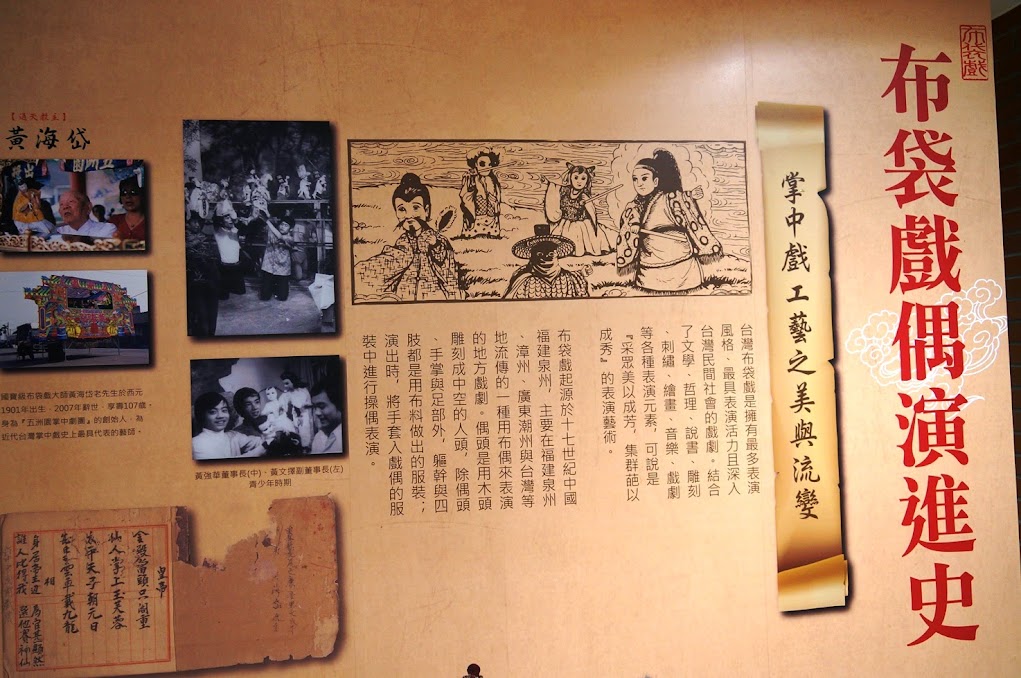 布袋戲
布袋戲偶演進史
掌中戲工藝之美與流變
台灣布袋戲是擁有最多表演
風格、最具表演活力且深入
台灣民間社會的戲劇。結合
了文學、哲理、說書、雕刻
、刺繡、繪畫、音樂、戲劇
等各種表演元素,可說是
『采眾美以成芳,集群葩以
成秀』的表演藝術。
布袋戲起源於十七世紀中國
福建泉州,主要在福建泉州
、漳州、廣東潮州與台灣等
地流傳的一種用布偶來表演
的地方戲劇。偶頭是用木頭
雕刻成中空的人頭,除偶頭
、手掌與足部外,軀幹與四
肢都是用布料做出的服裝;
演出時,將手套入戲偶的服
裝中進行操偶表演。
黃強華董事長(中)、黃文擇副董事長(左)
青少年時期
【通天教主】
黃海岱
國寶級布袋戲大師黃海岱老先生於西元
1901年出生,2007年辭世,享壽107歲。
身為『五洲園掌中劇團』的創始人,為
近代台灣掌中戲史上最具代表的藝師。
皇帝
金殿當頭紫閣重
仙人掌上玉芙蓉
太平天子朝元日
五色雲車載九龍
相